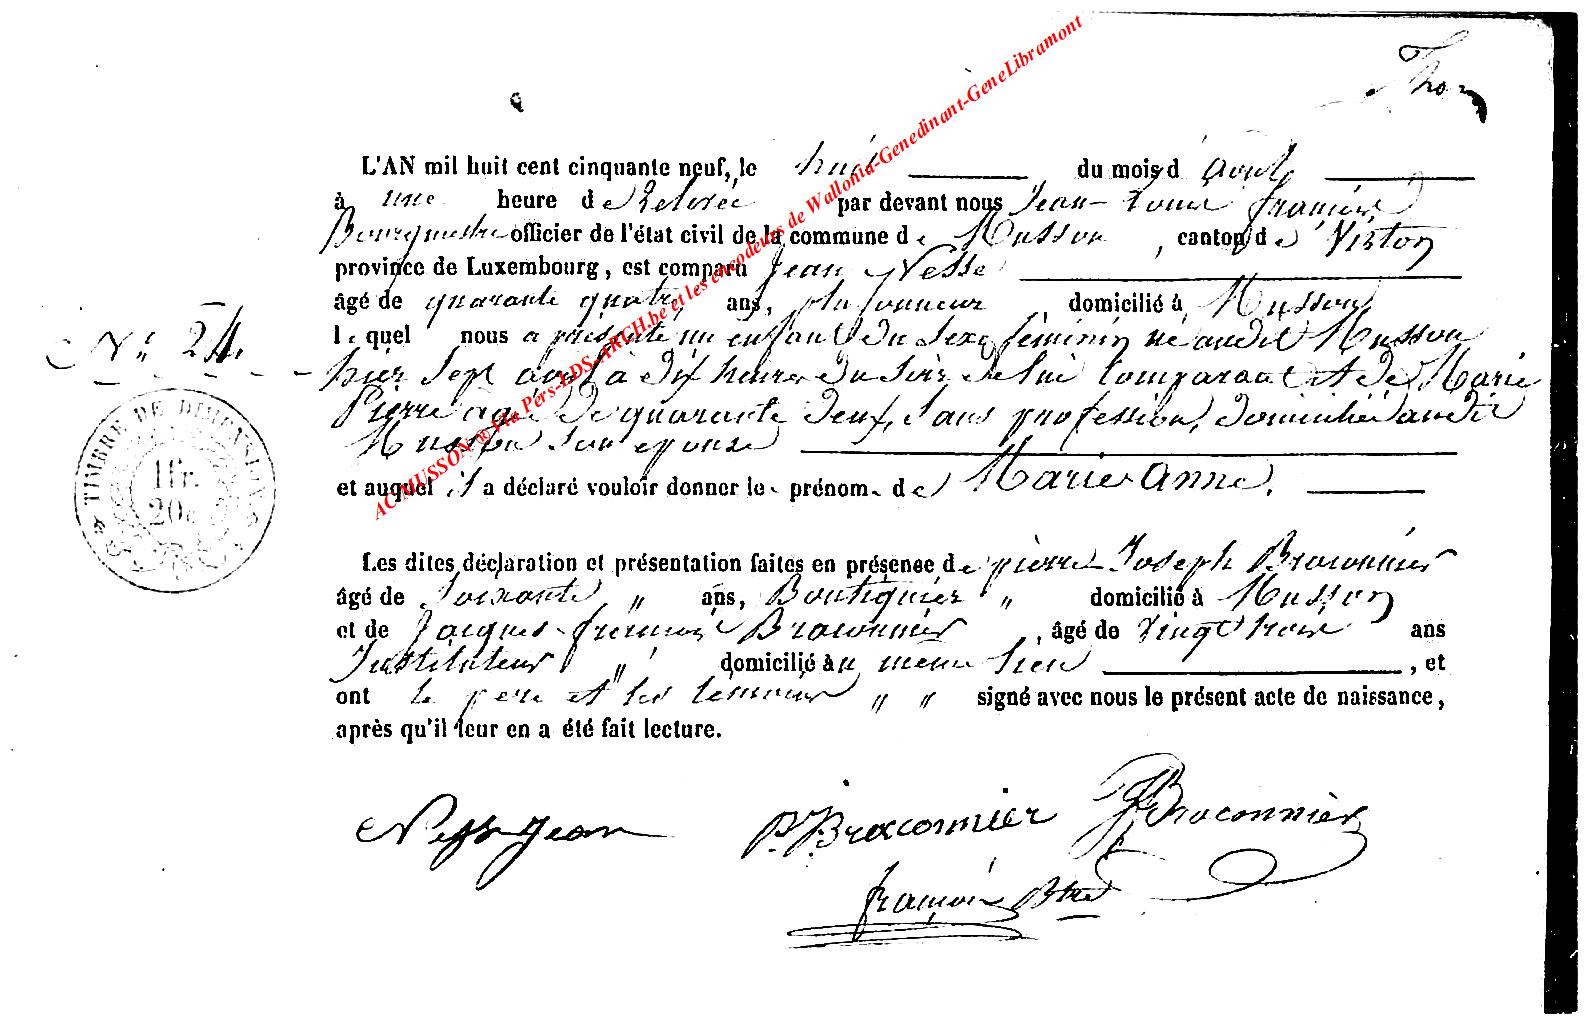 Tho
L'AN mil huit cent cinquante neuf, le huit du mois d'avril
à une heure de Relevée par devant nous Jean-Louis françois
Bourgmestre officier de l'état civil de la commune de Musson, canton de Virton
province de Luxembourg, est comparu Jean Nesse
âgé de quarante quatre ans, plafonneur, domicilié à Musson
lequel nous a présenté un enfant du sexe féminin né audit Musson
hier sept avril à dix heures du soir de lui Comparant et de Marie
Pierre agé de quarante deux, sans profession, domiciliée audit
Musson son epouse
et auquel il a déclaré vouloir donner le prénom de Marie anne.
Les dites déclaration et présentation faites en présence de pierre Joseph Braconnier
âgé de soixante " ans, Boutiquier " domicilié à Musson
et de Jacques françois Braconnier, âgé de vingt trois ans
Instituteur " domicilié au même lieu, et
ont le pere et les temoins " " signé avec nous le présent acte de naissance,
après qu'il leur en a été fait lecture.
N° 24.
TIMBRE DE DIMENSION
1 fr.
20c
Ness Jean P.J. Braconnier JfBraconnier
françois Btre
AC-MUSSON ® Via Pers-LDS-ARCH.be et les encodeurs de Wallonia-Genedinant-GeneLibramont